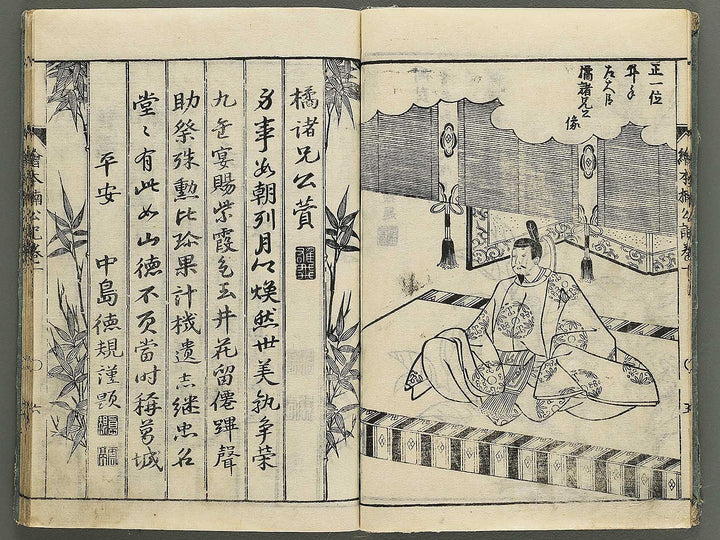 正一位
左大臣
橘諸兄公
像
橘諸兄公賛
事如朝列月以煥然世美孰争栄
九重宴賜紫霞色玉井花留僊蹕声
助祭殊勲比珍果計機遺志継忠名
堂〻有此如山徳不負當时稱葛城
平安 中島徳規謹題
繪本楠公記巻一
六